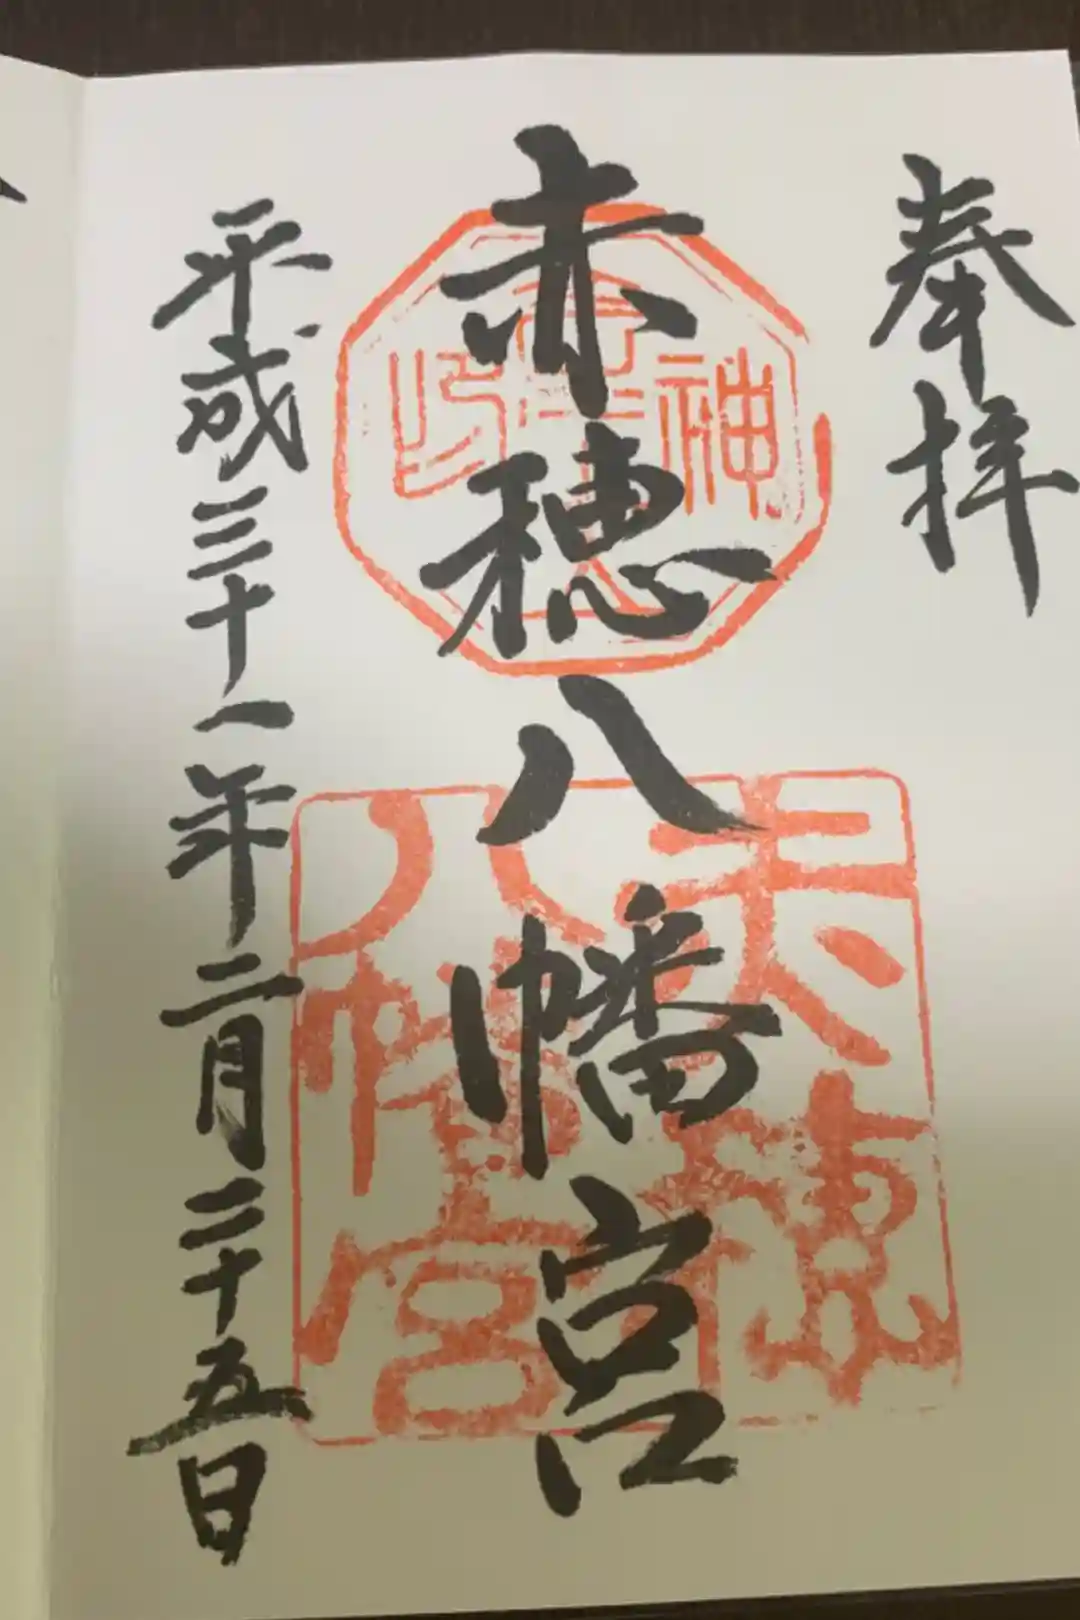 奉拝
赤穂八幡宮
平成三十一年二月二十五日
赤穂
八幡宮